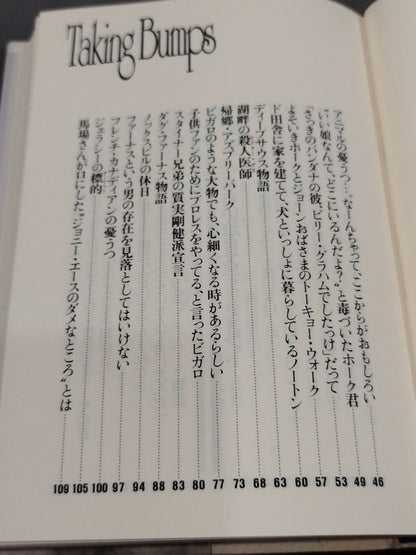 Taking Bumps
アニマルの憂うつ…。なーんちゃって、ここからがおもしろい 46
“いい娘なんて、どこにいるんだよ?”と毒づいたホーク君 49
「さっきのバンダナの彼、ビリー・グラハムでしたっけ」だって 53
よそいきホークとジョーンおばさまのトーキョー・ウォーク 57
ド田舎に家を建てて、犬といっしょに暮らしているノートン 60
ディープサウス物語 63
湖畔の殺人医師 68
帰郷・アズブリー・パーク 73
ビガロのような大物でも、心細くなる時があるらしい 77
子供ファンのためにプロレスをやってる、と言ったビガロ 80
スタイナー兄弟の質実剛健派宣言 83
ダグ・ファーナス物語 88
ノックスビルの休日 94
ファーナスという男の存在を見落としてはいけない 97
フレンチ・カナディアンの憂うつ 100
ジェラシーの標的 105
馬場さんが口にした“ジョニー・エースのダメなところ”とは 109